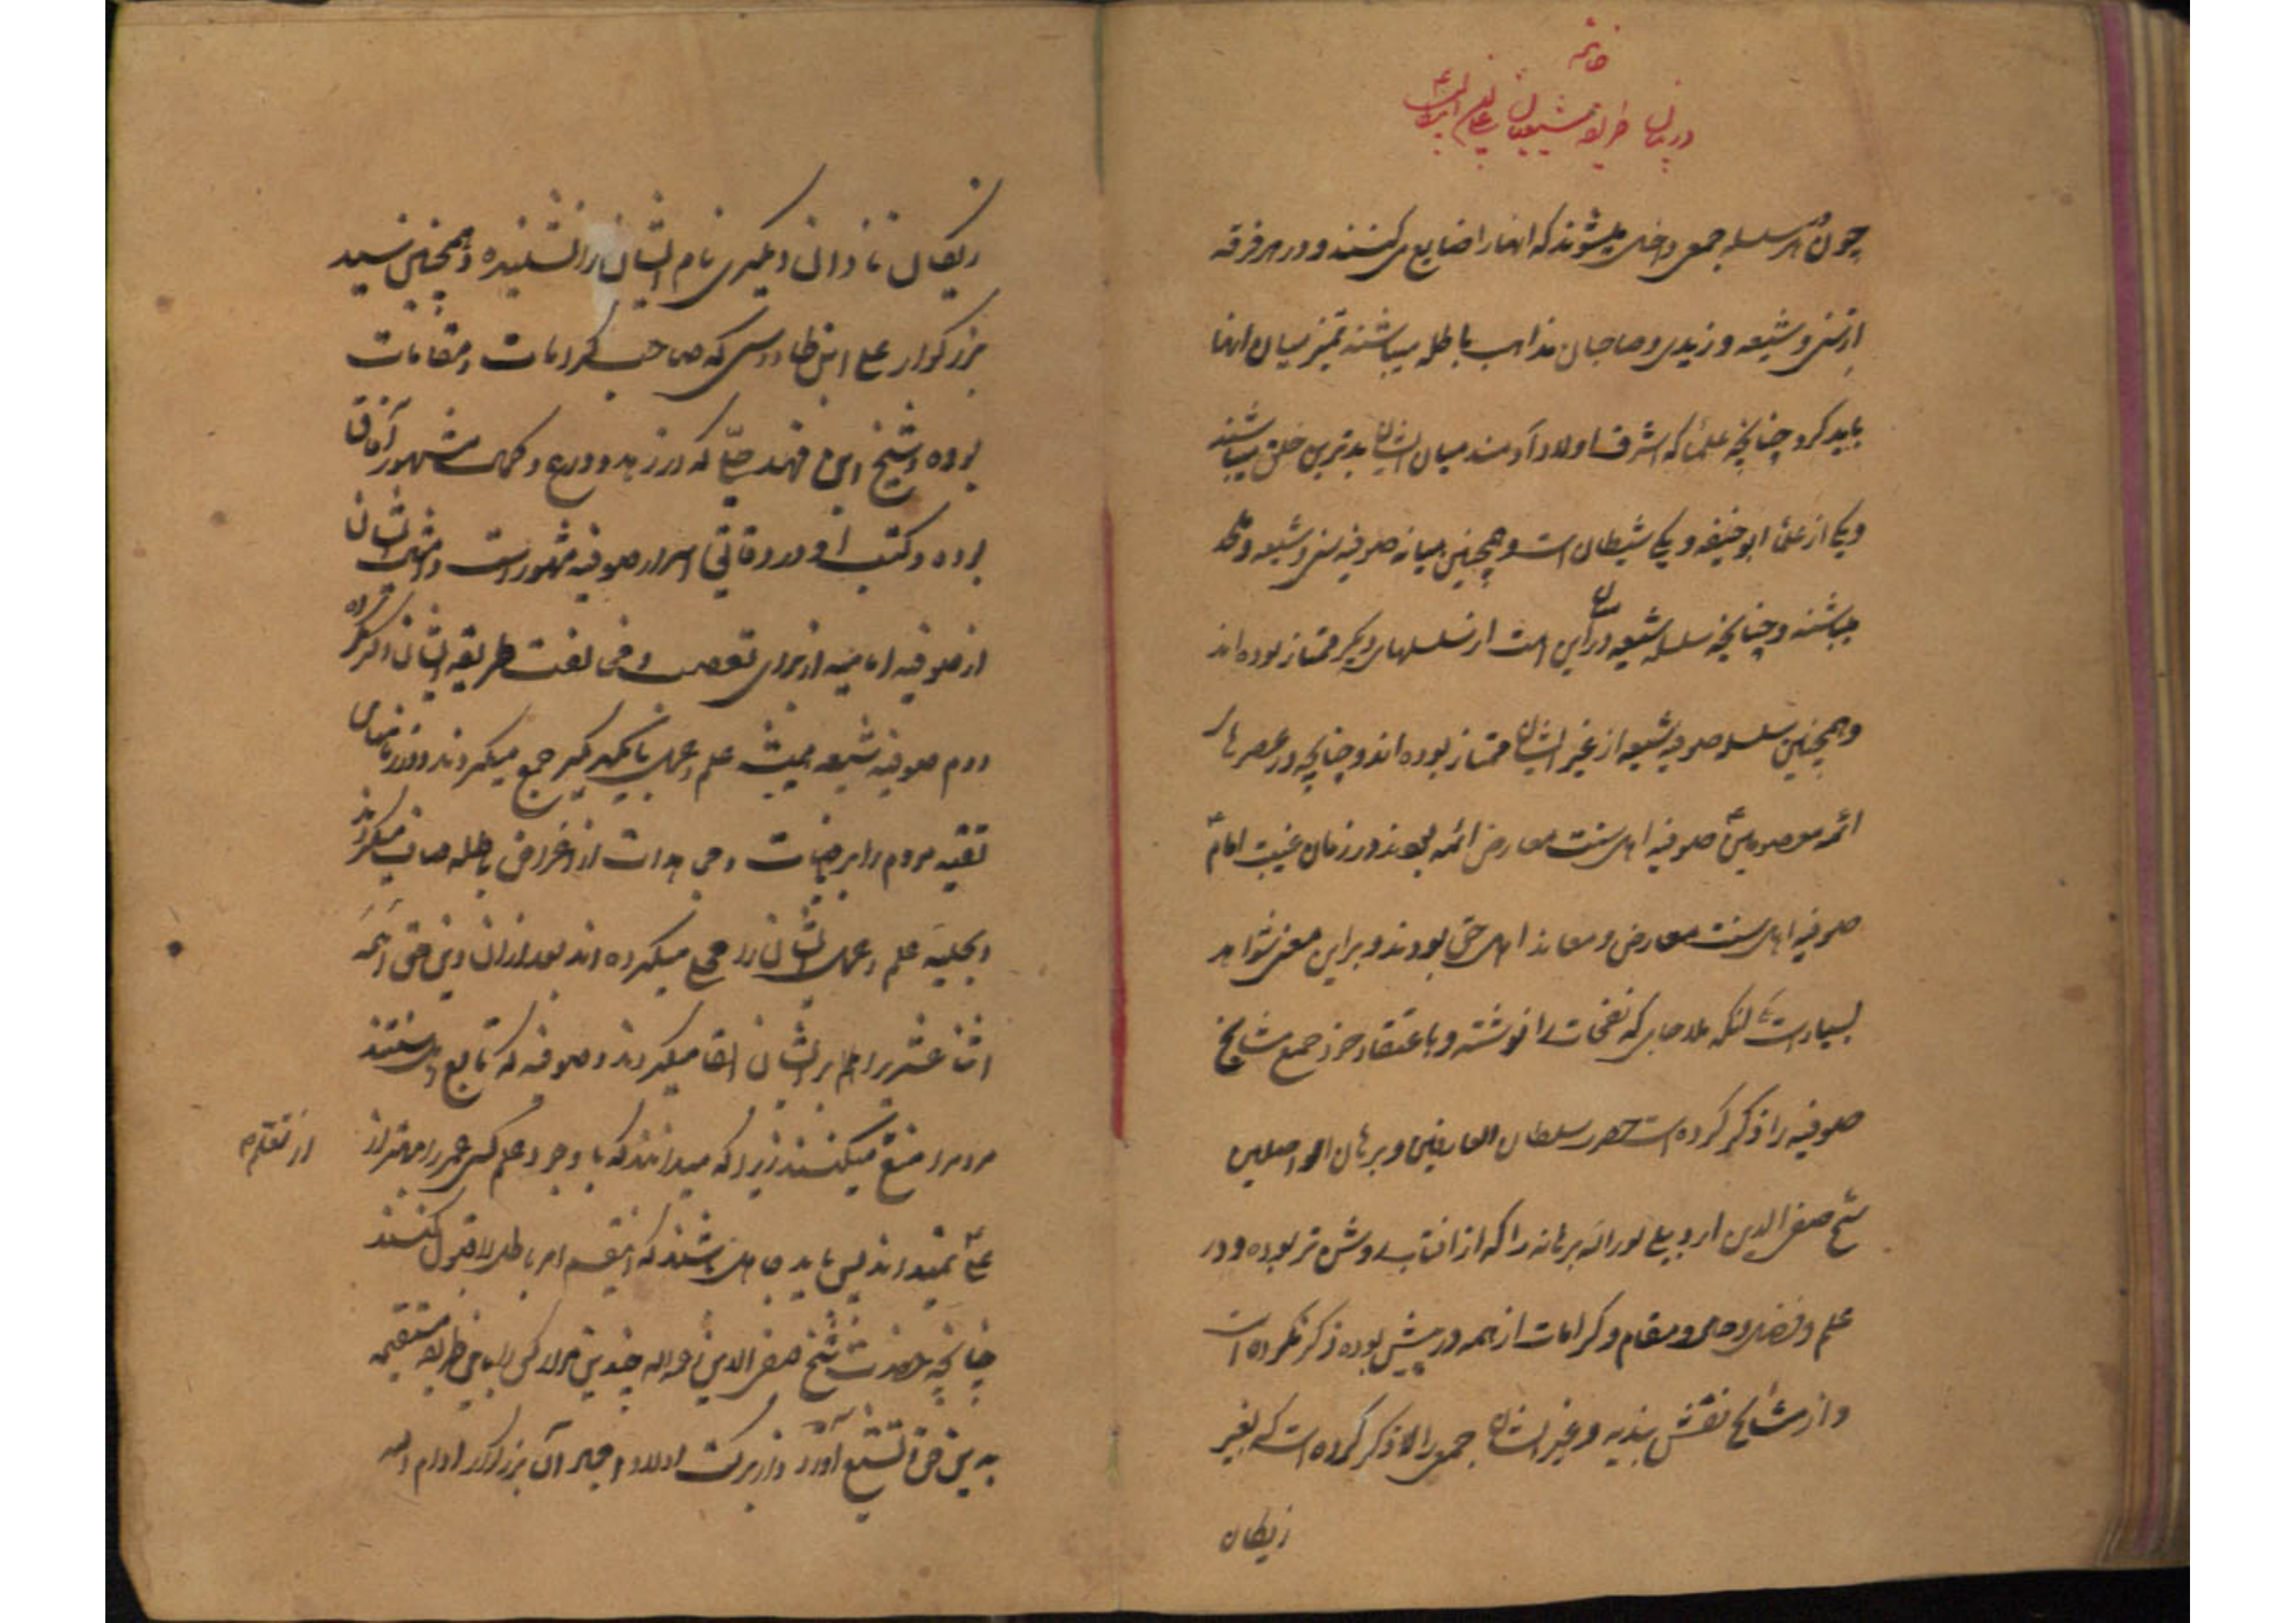 خاتمه
در بیان طریقه شیعیان
چون در هر سلسله جمعی داخل میشوند که انها را ضایع می کنند و در هر فرقه
از سنی و شیعه و زیدی و صاحبان مذاهب باطله میباشند تمیز میان انها
باید کرد چنانچه علما که اشرف اولاد آدمند میان ایشان بدترین خلق میباشند
و یکی از علما ابو حنیفه و یکی شیطان است و همچنین میانه صوفیه سنی و شیعه و ملحد
میباشند و چنانچه سلسله شیعه در میان این امت از سلسلهای دیگر ممتاز بوده اند
و همچنین سلسله صوفیه شیعه از غیر ایشان ممتاز بوده اند و چنانچه در عصرهای
ائمه معصومین صوفیه اهل سنت معارض ائمه بودند در زمان غیبت امام
صوفیه اهل سنت معارض و معاند اهل حق بودند و بر این معنی شواهد
بسیار است که ملا جامی که نفحات را نوشته و باعتقاد خود جمیع مشایخ
صوفیه را ذکر کرده است حضرت سلطان العارفین و برهان الواصلین
شیخ صفی الدین اردبیلی نور الله برهانه را که از افتاب روشن تر بوده و در
علم و فضل و حال و مقام و کرامات از همه در پیش بوده ذکر نکرده است
و از مشایخ نقش بندیه و غیر ایشان جمعی را ذکر کرده است که بغیر
نادان دیگری نام ایشان را نشنیده و همچنین سید
بزرگوار علی ابن طاووس که صاحب کرامات و مقامات
بوده و شیخ ابن فهد حلی که در زهد و ورع و کمال مشهور آفاق
بوده و کتب او در دقایق اسرار صوفیه مشهور است و امثال ایشان
از صوفیه امامیه از برای تعصب و مخالفت طریقه ایشان ذکر نکرده
دوم صوفیه شیعه همیشه علم و عمل با یکدیگر جمع میکردند و در زمانهای
تقیه مردم را بریاضات و مجاهدات از اغراض باطله صاف میکردند
و بحلیه علم و عمل ایشان را محلی میکرده اند بعد از ان دین حق ائمه
اثنا عشر را بر ایشان القا میکردند و صوفیه که تابع اهل سنتند
مردم را از تعلم منع میکنند زیرا که میدانند که با وجود علم کسی عمر را بهتر از
علی نمیداند پس باید جاهل باشند که این قسم امر باطل را قبول کنند
چنانچه حضرت شیخ صفی الدین چندین هزار کس را باین طریقه مستقیمه
به دین حق تشیع آورد و از برکت اولاد امجاد آن بزرگوار ادام الله